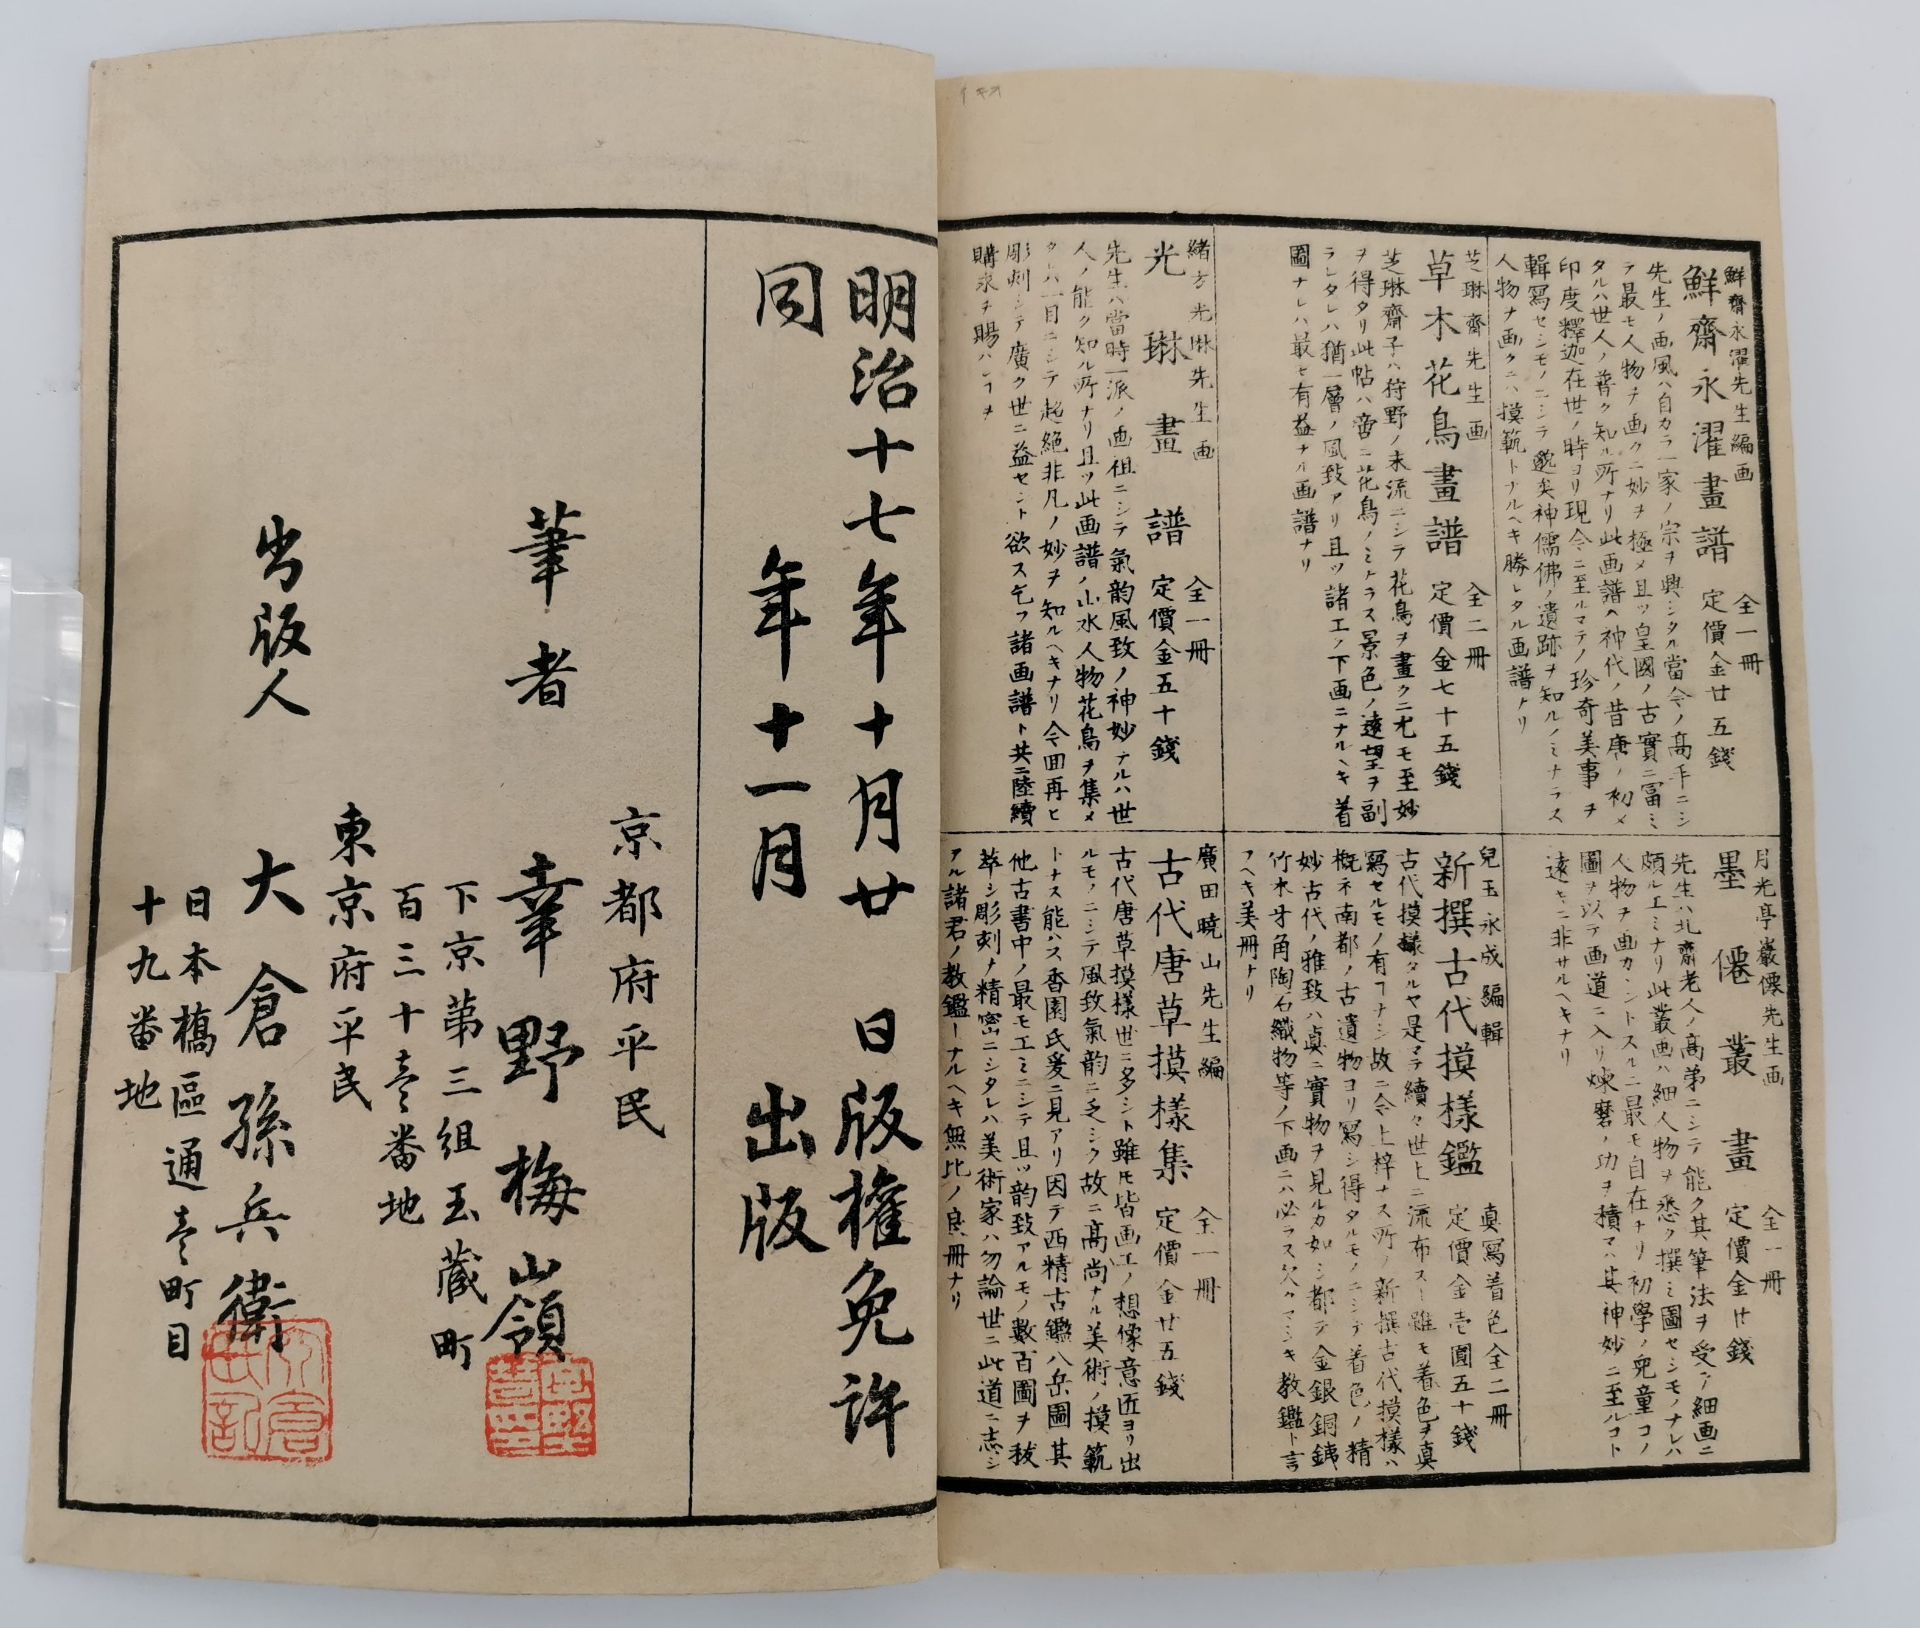 鮮齋永濯先生編画
鮮齋永濯畫譜
全一冊
定價金廿五錢
先生ノ画風ハ自カラ一家ノ宗ヲ興シタル當今ノ髙手ニシ
テ最モ人物ヲ画クニ妙ヲ極メ且ツ皇國ノ古實ニ冨ミ
タルハ世人ノ普ク知ル所ナリ此画譜ヘ神代ノ昔唐ノ初メ
印度釋迦在世ノ時ヨリ現今ニ至ルマテノ珍奇美事ヲ
輯寫セシモノニシテ邈矣神儒佛ノ遺跡ヲ知ルノミナラス
人物ヲ画クニハ摸範トナルヘキ勝レタル画譜ナリ
芝琳齋先生画
草木花鳥畫譜
全二冊
定價金七十五錢
芝琳齋子ハ狩野ノ末流ニシテ花鳥ヲ畫クニ尤モ至妙
ヲ得タリ此帖ハ啻ニ花鳥ノミナラス景色ノ遠望ヲ副
ラレタレハ猶一層ノ風致アリ且ツ諸工ノ下画ニナルヘキ着
圖ナレハ最モ有益ナル画譜ナリ
緒方光琳先生画
光琳畫譜
全一冊
定價金五十錢
先生ハ當時一派ノ画祖ニシテ氣韵風致ノ神妙ナルハ世
人ノ能ク知ル所ナリ且ツ此画譜ノ山水人物花鳥ヲ集メ
タルハ一目ニシテ超絶非凡ノ妙ヲ知ルヘキナリ今回再ヒ
彫刻シテ廣ク世ニ益セント欲ス乞フ諸画譜ト共ニ陸續
購求ヲ賜ハンヿヲ
月光亭巌僊先生画
墨僊叢畫
全一冊
定價金廿錢
先生ハ北齋老人ノ髙弟ニシテ能ク其筆法ヲ受ケ細画ニ
頗ル工ミナリ此叢画ハ細人物ヲ悉ク撰ミ圖セシモノナレハ
人物ヲ画カントスルニ最モ自在ナリ初學ノ兒童コノ
圖ヲ以テ画道ニ入リ煉磨ノ功ヲ積マハ其神妙ニ至ルコト
遠キニ非サルヘキナリ
兒玉永成編輯
新撰古代摸樣鑑
眞寫着色全二冊
定價金壱圓五十錢
古代摸樣タルヤ是マテ續々世上ニ流布スト雖モ着色ヲ眞
寫セルモノ有ヿナシ故ニ今上梓ナス所ノ新撰古代摸樣ハ
概ネ南都ノ古遺物ヨリ寫シ得タルモノニシテ着色ノ精
妙古代ノ雅致ハ眞ニ實物ヲ見ルカ如シ都テ金銀銅銕
竹木牙角陶石織物等ノ下画ニハ必ラス欠クマシキ教鑑ト言
フヘキ美冊ナリ
廣田曉山先生編
古代唐草摸樣集
全一冊
定價金廿五錢
古代唐草摸樣世ニ多シト雖𪜈皆画工ノ想像意匠ヨリ出
ルモノニシテ風致氣韵ニ乏シク故ニ髙尚ナル美術ノ摸範
トナス能ハス香園氏爰ニ見アリ因テ西精古鑑八岳圖其
他古書中ノ最モ工ミニシテ且ツ韵致アルモノ數百圖ヲ秡
萃シ彫刻ヲ精密ニシタレハ美術家ハ勿論世ニ此道ニ志シ
アル諸君ノ教鑑トナルヘキ無比ノ良冊ナリ
明治十七年十月廿　日版權免許
同　年十一月　出版
京都府平民
筆者　幸野楳嶺
下京第三組玉蔵町
百三十壱番地
東京府平民
出版人　大倉孫兵衛
日本橋區通壱町目
十九番地